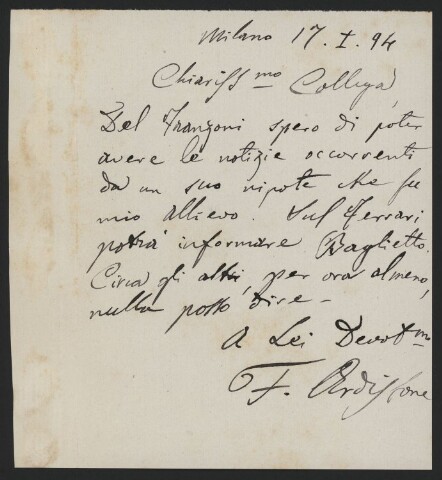 Milano 17. I. 94
Chiariss.mo Collega,
Del Franzoni spero di poter
avere le notizie occorrenti
da un suo nipote che fu
mio allievo. Sul Ferrari
potrà informare Baglietto.
Circa gli altri, per ora almeno,
nulla posso dire –
A Lei Devot.mo
F. Ardissone